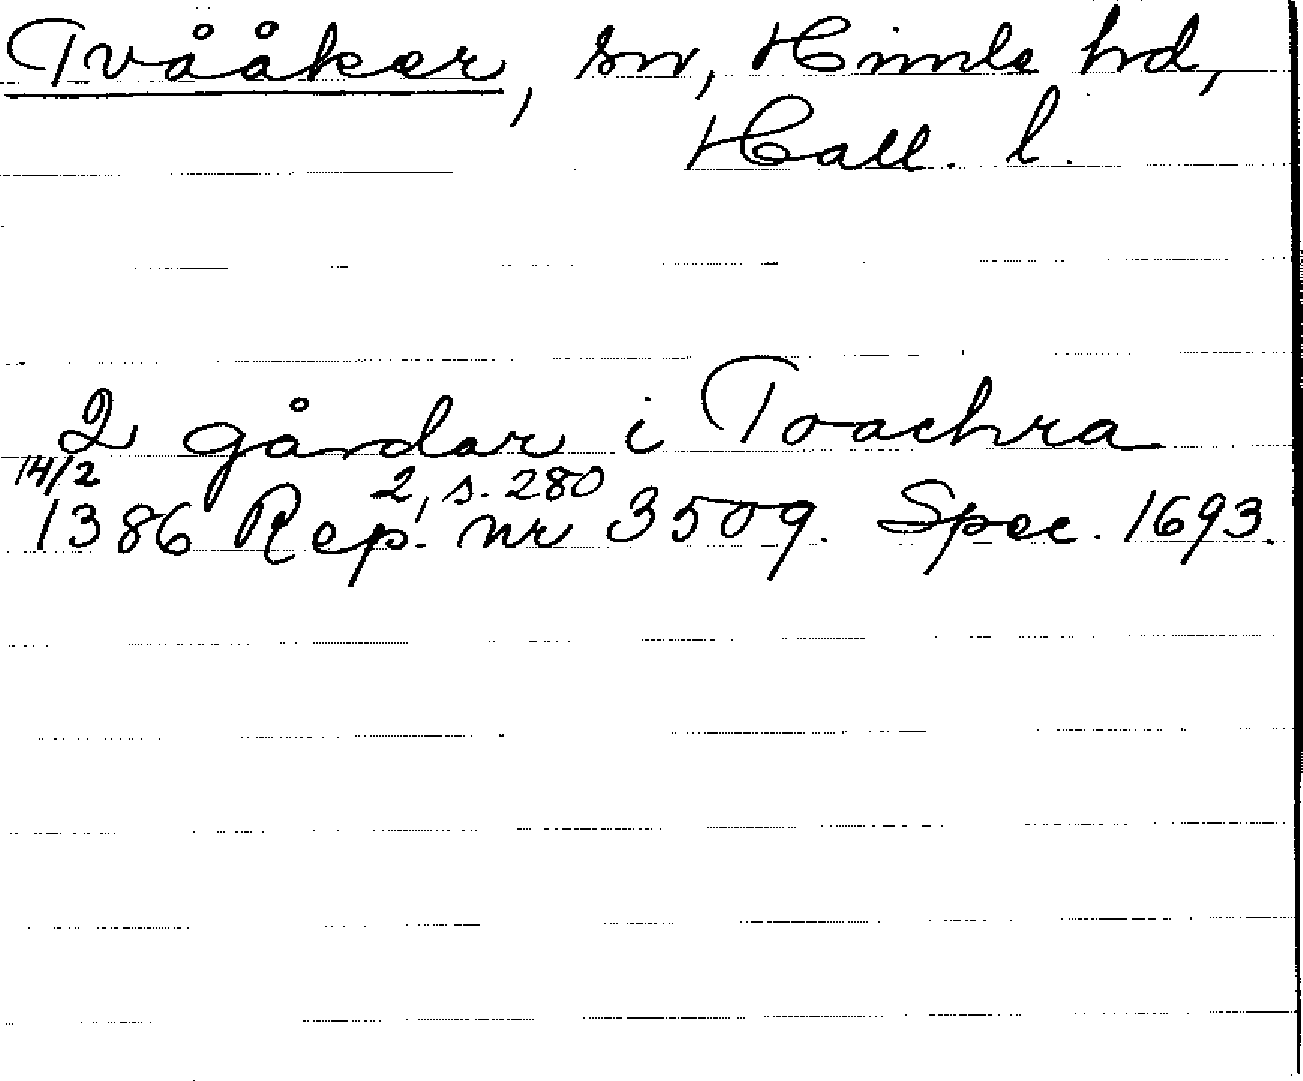 Tvååker, sn, Himle hd,
Hall. l.
2 gårdar i Toachra
14/2 2, s. 280
1386 Rep. nr 3509. Spec. 1693.